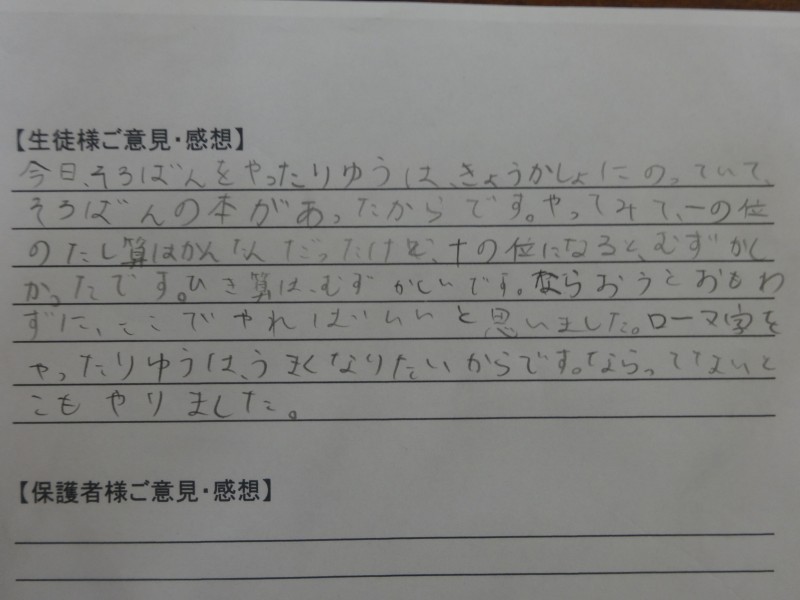 【生徒様ご意見・感想】
今日、そろばんをやったりゆうは、きょうかしょにのっていて、
そろばんの本があったからです。やってみて、一の位
のたし算はかんたんだったけど、十の位になると、むずかし
かったです。ひき算は、むずかしいです。ならおうとおもわ
ずに、ここでやればいいと思いました。ローマ字を
やったりゆうは、うまくなりたいからです。ならってないと
こもやりました。
【保護者様ご意見・感想】